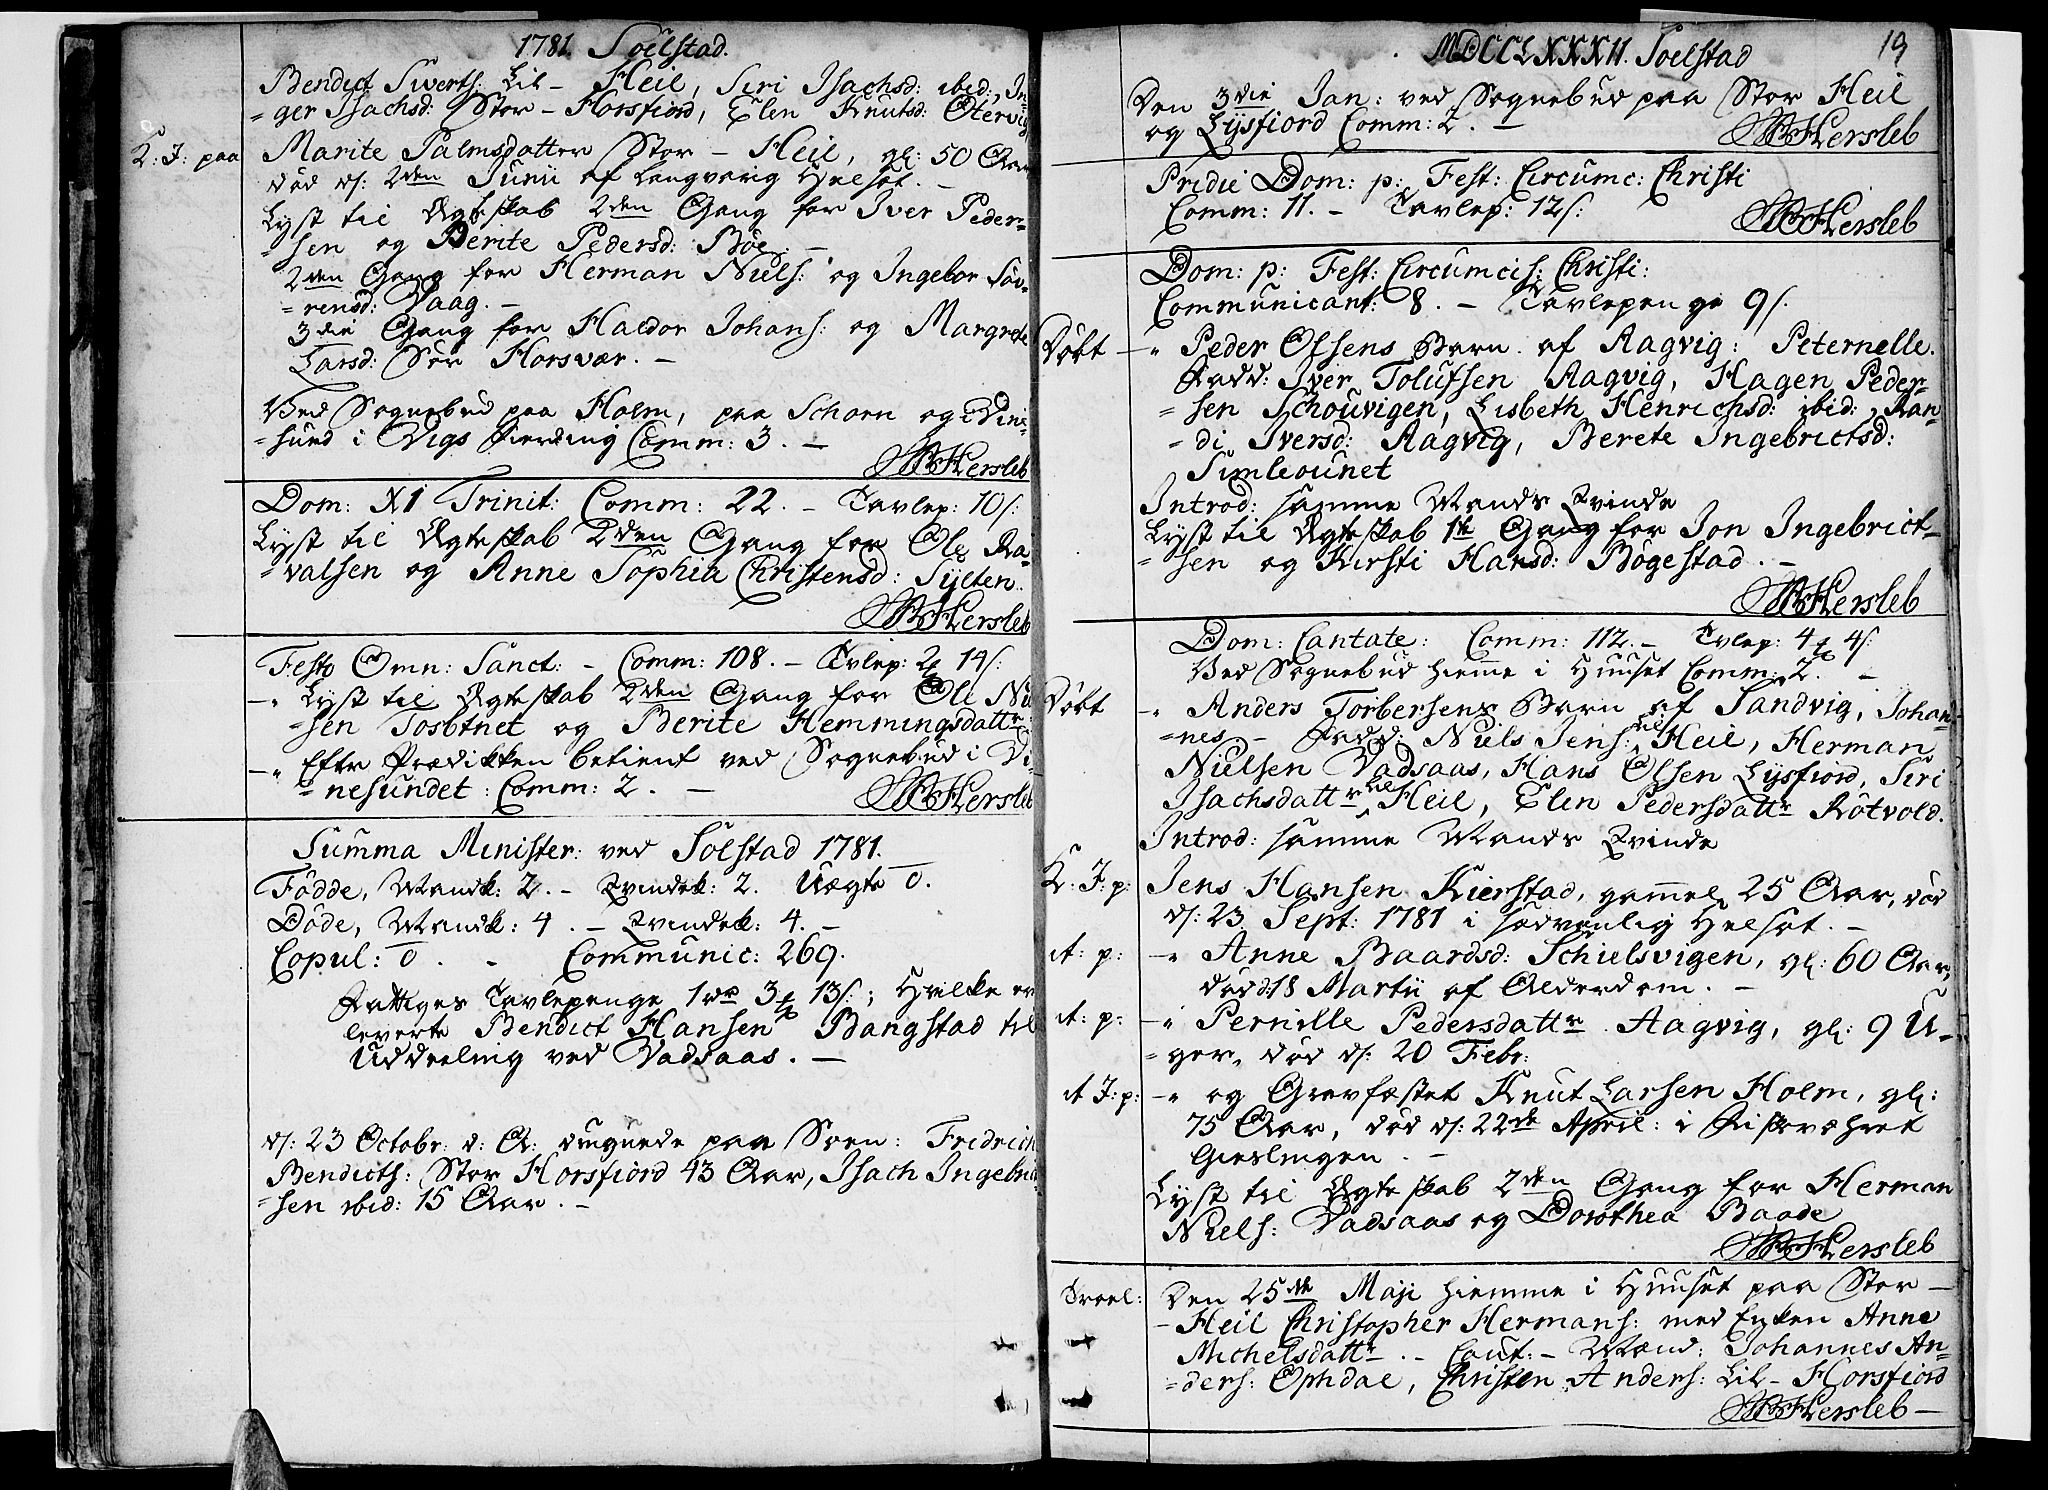 1781. Soelstad.
Bendict Siverts: Lil- Heil, Siri Isachsd: ibid:, In-
=ger Isachsd: Stor-Horsfiord, Elen Knutsd: Otervig
K: J: paa Marite Palmsdatter Stor-Heil, gl: 50 Aar
død d: 2den Junii af langvarig Helsot. –
Lyst til Ægteskab 2den Gang for Iver Peder-
=sen og Berite Pedersd: Böe. –
2den Gang for Herman Niels: og Ingebor Söv-
=rensd: Vaag. –
3die Gang for Haldor Johans: og Margrete
Larsd: Sör Horsvær. –
Ved Sognebud paa Holm, paa Schorn og Vine-
=sund i Vigs Fierding Comm: 3. –
Hersleb
Dom: XI Trinit: Comm: 22. – Tavlep: 10 s:
Lyst til Ægteskab 2den Gang for Ole Ra-
=valsen og Anne Sophia Christensd: Sylten.
Hersleb
Festo Omn: Sanct: – Comm: 108. – Tvlep: 2 14 s:
–" Lyst til Ægteskab 2den Gang for Ole Niel
=sen Tosbtnet og Berite Hemmingsdattr
–" Eftr Prædikken betient ved Sognebud i Vi-
=nesundet: Comm: 2. –
Hersleb
Summa Minister: ved Solstad 1781.
Födde, Mandk: 2. – Qvindek: 2. Uægte 0.
Döde, Mandk: 4. – Qvindek: 4. –
Copul: 0. – Communic: 269.
Fattiges Tavlepenge 3 13 s:; Hvilke er
leverte Bendict Hansen Bangstad til
Uddeeling ved Vadsaas. –
d: 23 Octobr: d: A: druknede paa Soen: Fridrich
Bendicts: Stor Horsfiord 43 Aar, Isach Ingebri-
=sen ibid: 15 Aar. –
MDCCLXXXII. Soelstad 19
Den 3die Jan: ved Sognebud paa Stor Heil
og Lysfiord Comm: 2. –
Hersleb
Pridie Dom: p: Fest: Circumc: Christi
Comm: 11. – Tavlep: 12 s:
Hersleb
Dom: p: Fest: Circumcis: Christi:
Communicant: 8. – Tavlepenge 9 s.
Döbt –" Peder Olsens Barn af Aagvig: Peternelle.
Fadd: Iver Tolufsen Aagvig, Hagen Peder-
=sen Schouvigen, Lisbeth Henrichsd: ibid:, Ran-
=di Iversd: Aagvig, Berete Ingebrictsd:
Simleounet
Introd: samme Mands Qvinde
Lyst til Ægteskab 1te Gang for Jon Ingebrict-
=sen og Kirsti Hansd: Bögestad. –
Hersleb
Dom: Cantate: Comm: 112. – Tvlep: 4 4 s:
Ved Sognebud hieme i Huuset Comm: 2. –
Döbt –" Anders Torbersens Barn af Sandvig, Johan-
=nes – Fadd: Niels Jens: lil Heil, Herman
Nielsen Vadsaas, Hans Olsen Lysfiord, Siri
Isachsdattr lil Heil, Elen Pedersdattr Rötvold.
Introd: samme Mands Qvinde
K: J: p: Jens Hansen Kierstad, gamel 25 Aar, död
d: 23 Sept: 1781 i sædvanlig Helsot. –
it: p: –" Anne Baardsd: Schielsvigen, gl: 60 Aar,
död: 18 Martii af Alderdom. –
it: p: –" Pernille Pedersdattr Aagvig, gl: 9 U-
=ger, död d: 20 Febr:
it J: p: –" og Gravfæstet Knut Larsen Holm, gl:
75 Aar, död d: 22de April: i Fiskeværet
Gieslingen. –
Lyst til Ægteskab 2den Gang for Herman
Niels: Vadsaas og Dorothea Baade
Hersleb
Trol: Den 25de Maji hiemme i Huuset paa Stor-
–Heil Christopher Hermans: med Enken Anne
Michelsdattr. – Caut: – Mænd: Johannes An-
=ders: Ophdal, Christen Anders: Lil-Horsfiord
Hersleb –